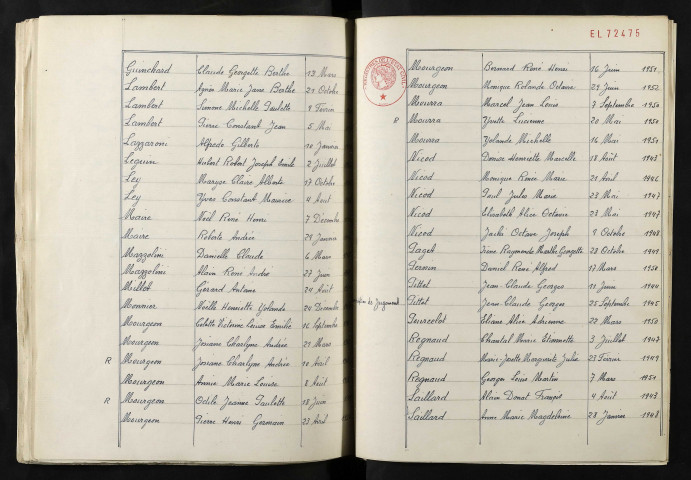 EL72475
Guinchard Claude Georgette Berthe 13 Mars
Lambert Agnès Marie Jane Berthe 21 Octobre
Lambert Simone Michelle Paulette 9 Février
Lambert Pierre Constant Jean 5 Mai
Lazzaroni Alfrède Gilberte 10 Janvier
Leguin Hubert Robert Joseph 2 Juillet
Ley Maryse Claire Alberte 17 Octobre
Ley Yves Constant Maurice 4 Août
Maire Noël René Henri 7 Décembre
Maire Roberte Andrée 29 Janvier
Mazzolini Danielle Claude 6 Mars
Mazzolini Alain René André 27 Juin
Millot Gérard Antoine 24 Août
Monnier Noëlle Henriette Yolande 24 Décembre
Mourgeon Colette Victorine Louise Emilie 16 Septembre
Mourgeon Josiane Charlyne Andrée 29 Mars
R Mourgeon Josiane Charlyne Andrée 10 Avril
Mourgeon Annie Marie Louise 8 Août
R Mourgeon Odile Jeanne Paulette 18 Juin
Mourgeon Pierre Henri Germain 23 Avril
Mourgeon Bernard René Henri 16 Juin 1951
Mourgeon Monique Rolande Octavie 29 Juin 1952
Mourra Marcel Jean Louis 7 Septembre 1950
Mourra Yvette Lucienne 20 Mai 1950
Mourra Yolande Michelle 16 Mai 1951
Nicod Denise Henriette Marcelle 18 Août 1943
Nicod Monique Renée Marie 21 Avril 1946
Nicod Paul Jules Marie 23 Mai 1947
Nicod Elisabeth Alice Octavie 23 Mai 1947
Nicod Jacki Octave Joseph 8 Octobre 1948
Paget Irène Raymonde Marthe Georgette 23 Octobre 1949
Persin Daniel René Alfred 17 Mars 1950
Pittet Jean Claude Georges 11 Juin 1944
Jugement Pittet Jean-Claude Georges 25 Septembre 1945
Pourcelot Eliane Alice Adrienne 22 Mars 1950
Regnaud Chantal Marie Etiennette 3 Juillet 1947
Regnaud Marie-Josette Marguerite Julie 23 Février 1949
Regnaud Georges Louis Martin 7 Mars 1951
Saillard Alain Donat François 4 Août 1943
Saillard Anne Marie Magdeleine 28 Janvier 1948